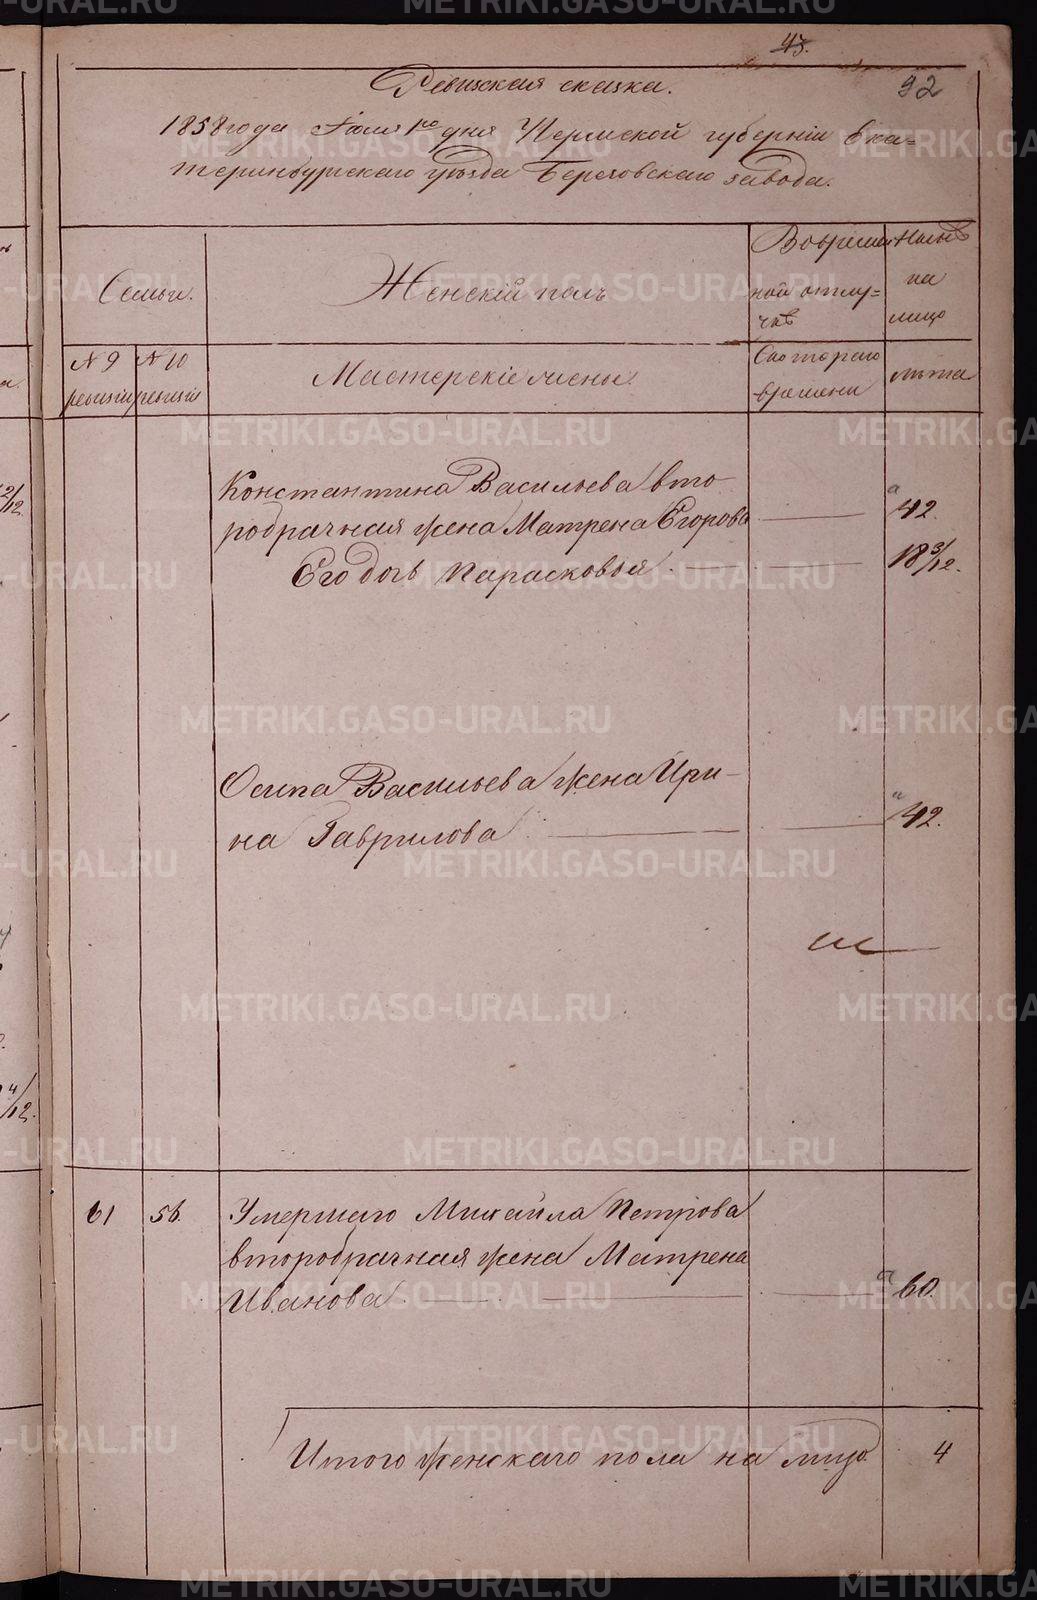 43.
92
Ревизская сказка.
1858 года Июля 1го дня Пермской губерніи Ека=
теринбургскаго уѣзда Березовскаго завода.
Семьи.
Женскій полъ
Во времен=
ной отлу=
чкѣ
Нынѣ
на
лицо
№ 9
ревизіи
№ 10
ревизіи
Мастерскіе жены.
Съ котораго
времени
лѣта
Константина Васильева вто-
робрачная жена Матрена Егорова
42.
Его дочь Парасковья
18 3/12.
Осипа Васильева жена Ири-
на Гаврилова
42.
61
56.
Умершаго Михайла Петрова
второбрачная жена Матрена
Иванова
60.
Итого женскаго пола на лицо.
4
METRIKI.GASO-URAL.RU